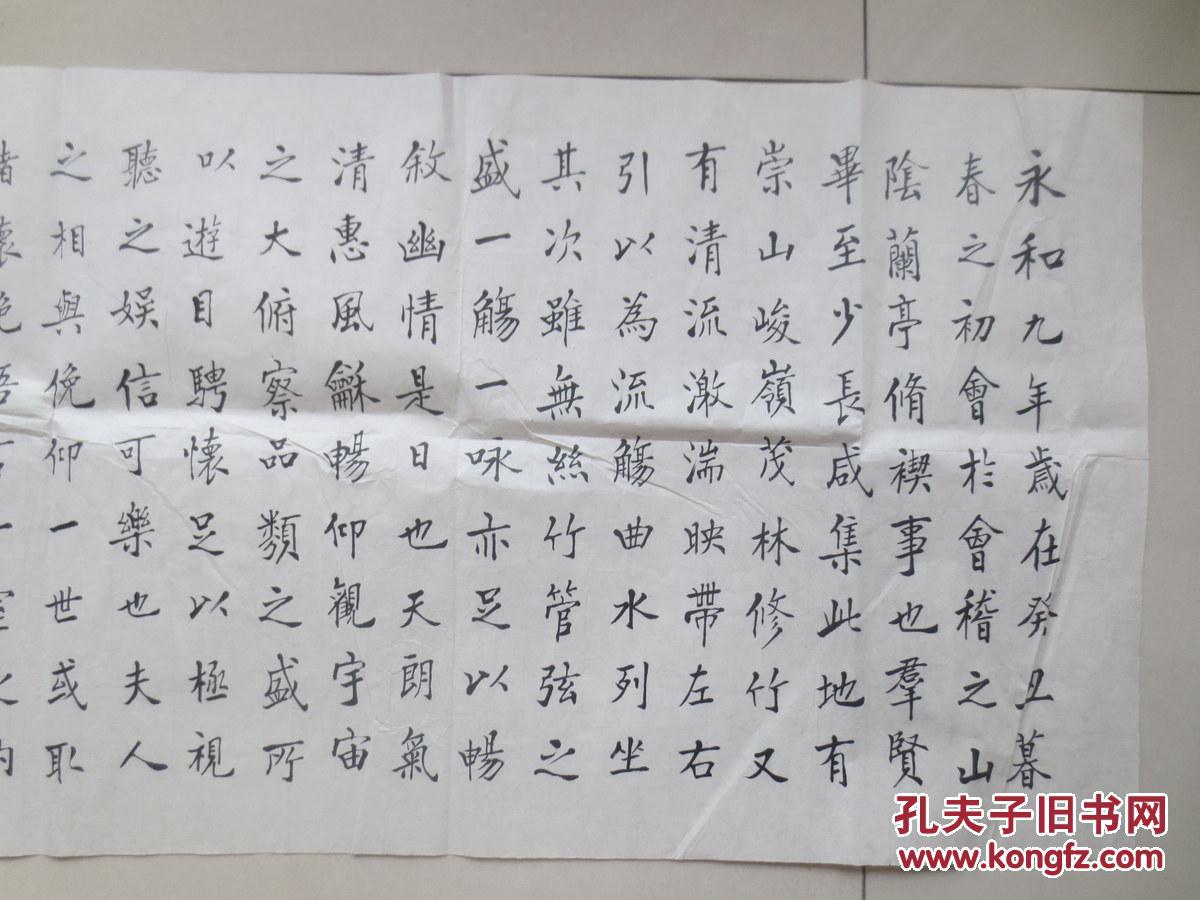 永和九年歲在癸丑暮
春之初會於會稽之山
陰蘭亭脩禊事也羣賢
畢至少長咸集此地有
崇山峻嶺茂林修竹又
有清流激湍映帶左右
引以為流觴曲水列坐
其次雖無絲竹管弦之
盛一觴一咏亦足以暢
敘幽情是日也天朗氣
清惠風龢暢仰觀宇宙
之大俯察品類之盛所
以遊目騁懷足以極視
聽之娱信可樂也夫人
之相與俛仰一世或取
孔夫子旧书网
www.kongfz.com